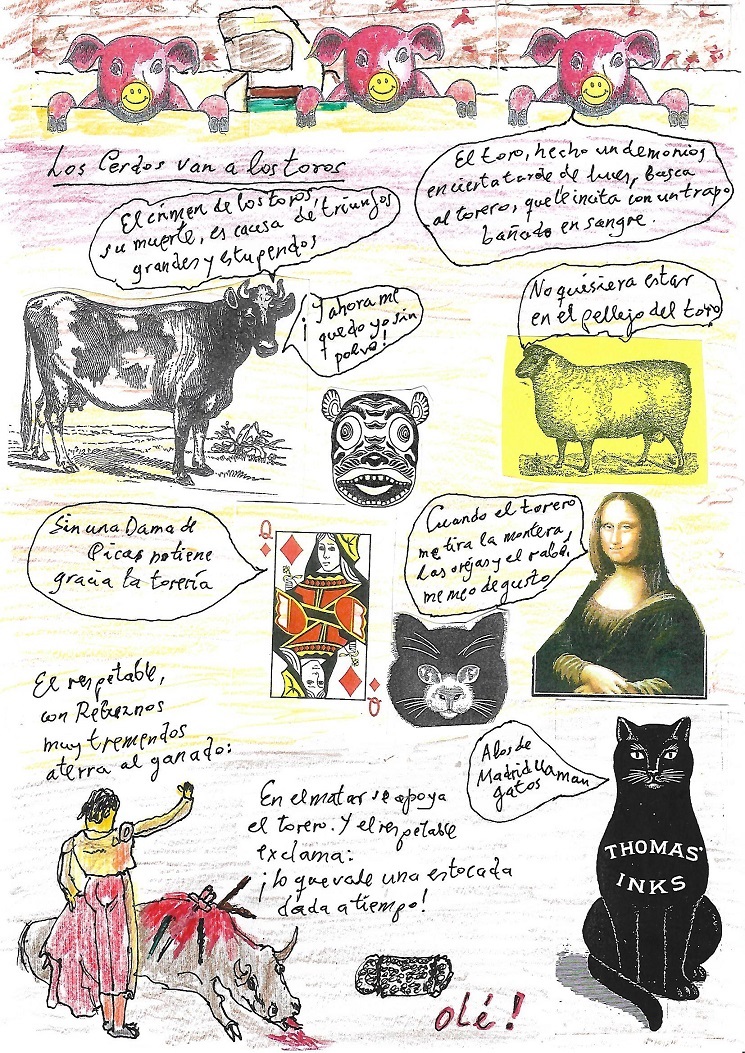 Los Cerdos van a los toros
El toro, hecho un demonios
en cierta tarde de lunes, busca
al torero, que le incita con un trapo
bañado en sangre.
El crimen de los toros,
su muerte, es causa de triunfos
grandes y estupendos
¡Y ahora me
quedo yo sin
polvo!
No quisiera estar
en el pellejo del toro
Sin una Dama de
Picas no tiene
gracia la torería
Q
Q
Cuando el torero
me tira la montera,
las orejas y el rabo,
me meo de gusto
El respetable,
con Rebuznos
muy tremendos
aterra al ganado:
A los de
Madrid llaman
gatos
THOMAS'
INKS
En el matar se apoya
el torero. Y el respetable
exclama:
¡lo que vale una estocada
dada a tiempo!
olé!